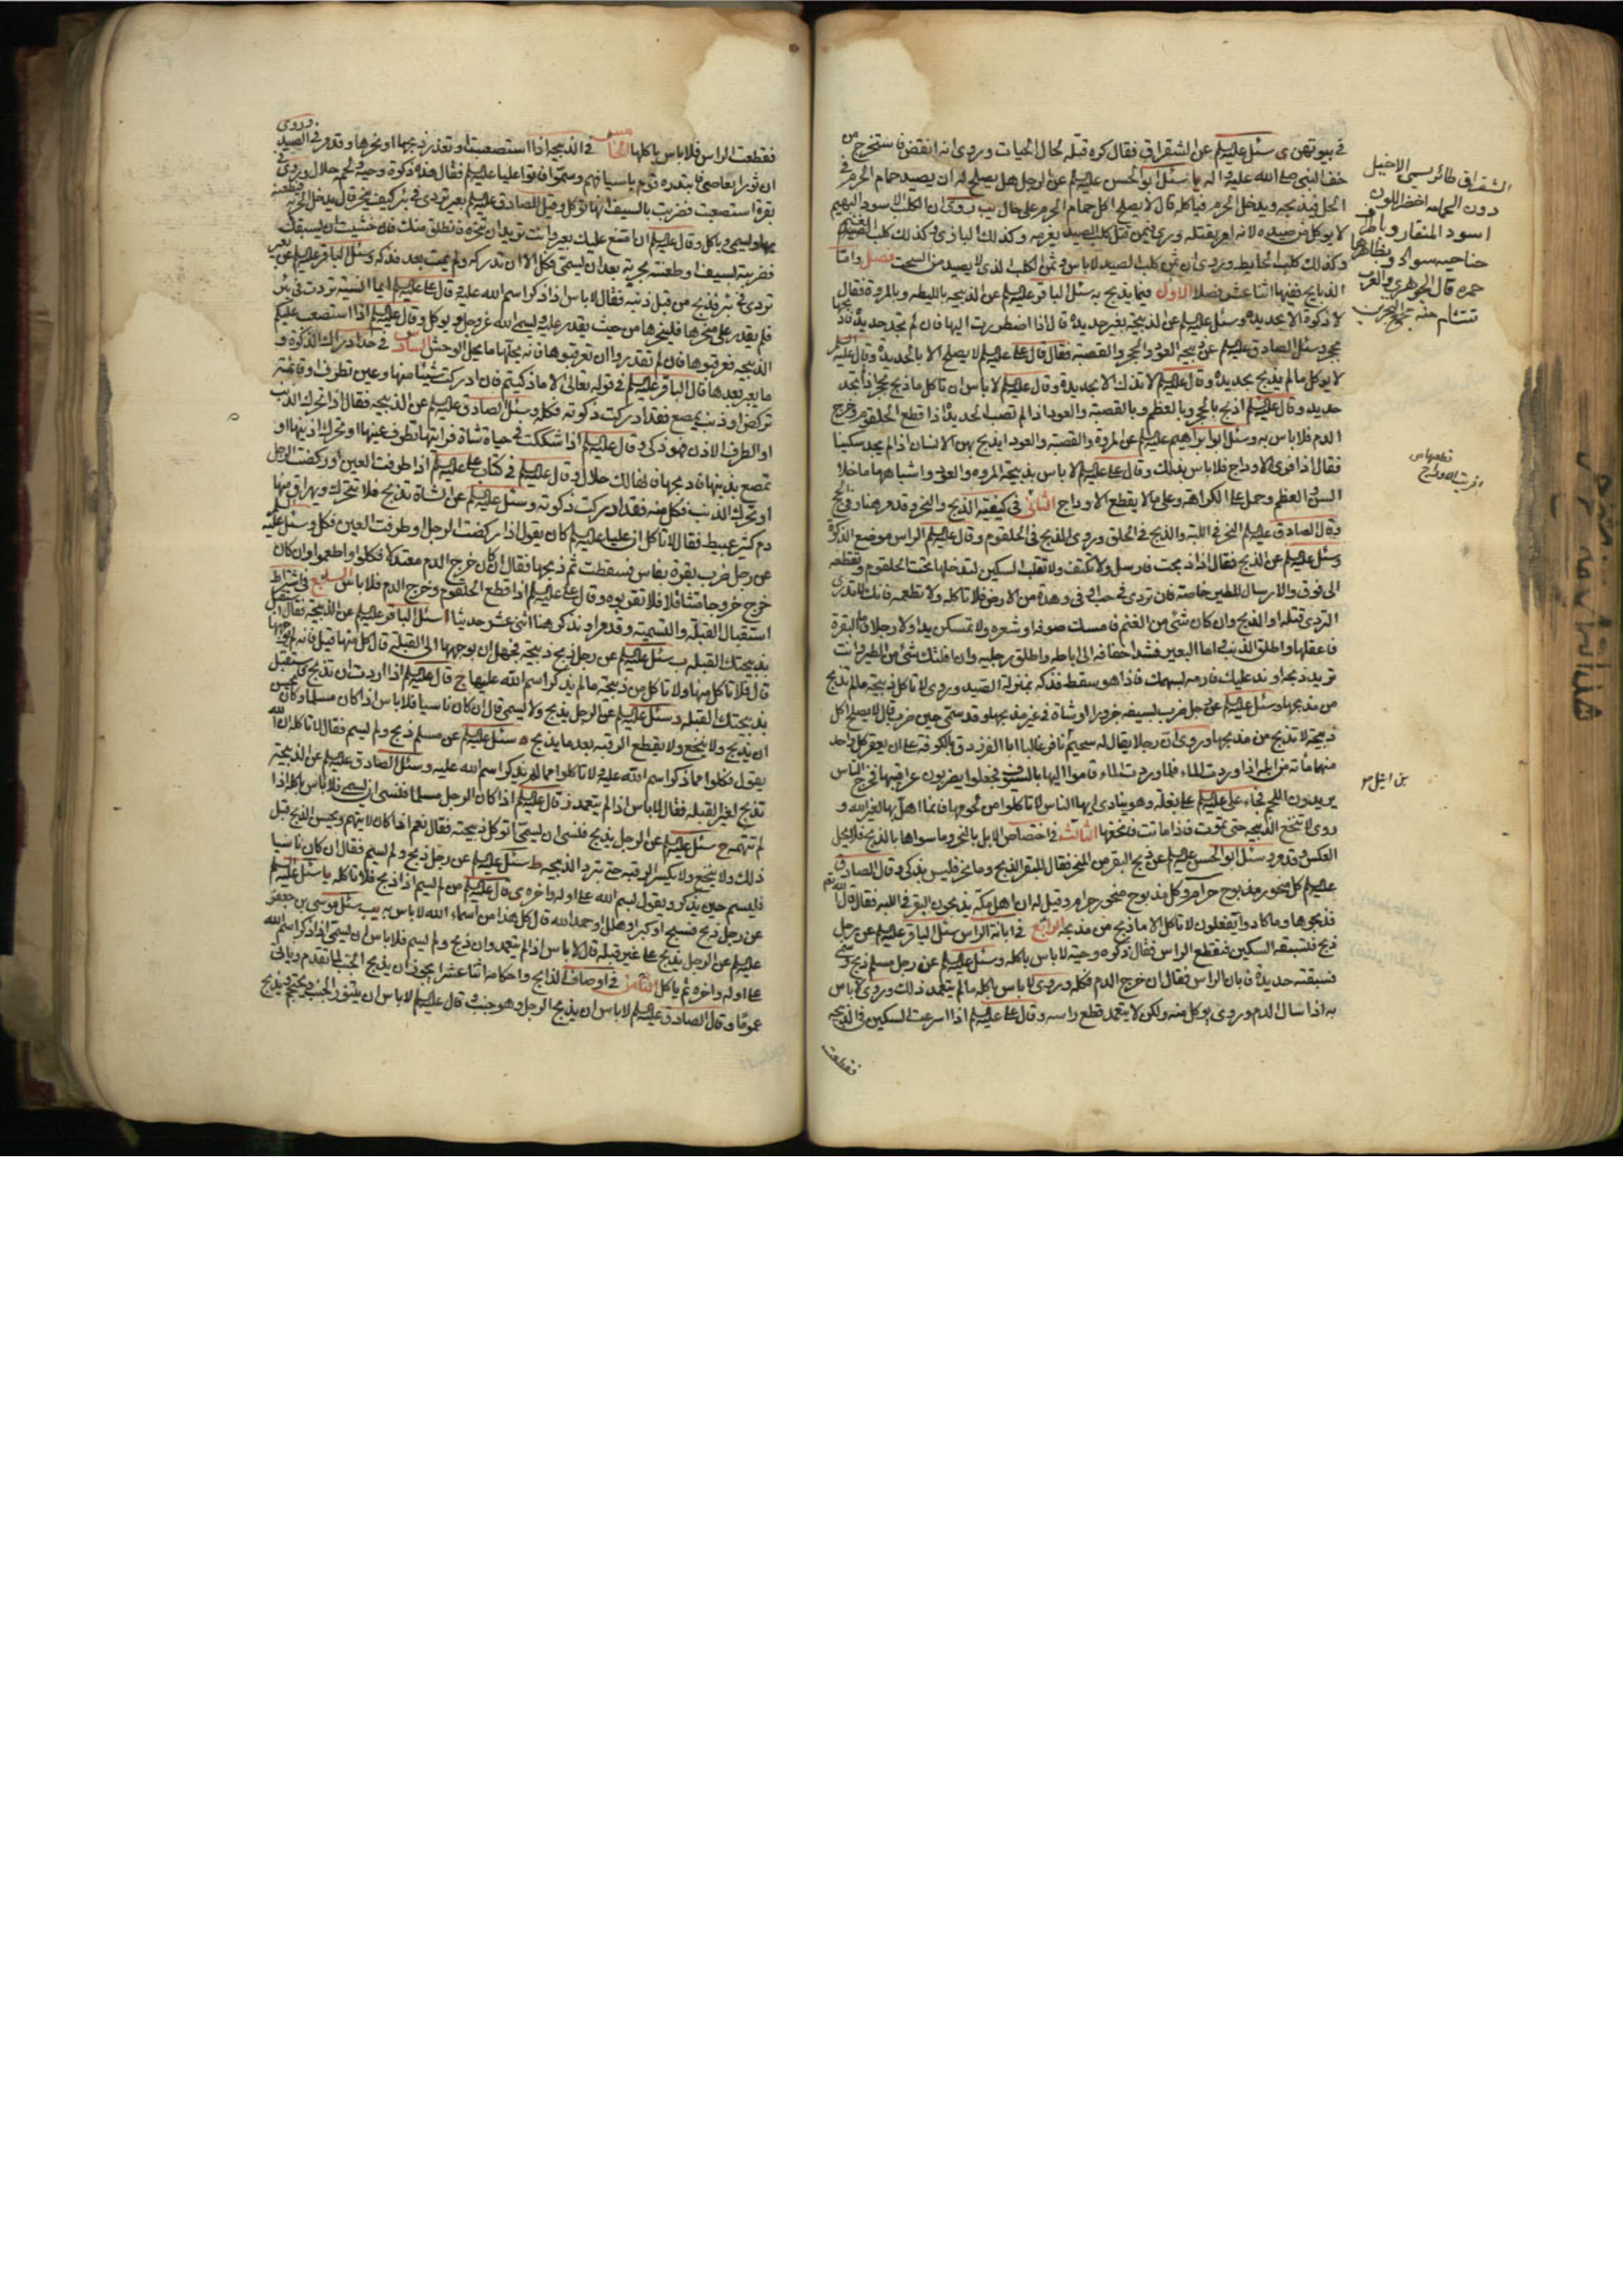 في بيوتهن ى سئل عليه السلم عن الشقراق فقال كره قتله لحال الحيات وروى انه انقض فاستخرج من
خف النبي صلى الله عليه واله يا سئل ابو الحسن عليه السلم عن الرجل هل يصلح له ان يصيد حمام الحرم في
الحل فيذبحه ويدخل الحرم فياكله قال لا يصلح اكل حمام الحرم على حال يب روى ان الكلب الاسود البهيم
لا يوكل من صيده لانه امر بقتله وروى فيمن قتل كلب الصيد يغرمه وكذلك البازى وكذلك كلب الغنم
وكذلك كلب الحايط وروى ان ثمن كلب الصيد لا باس به وثمن الكلب الذى لا يصيد من السحت فصل واما
الذبايح ففيها اثنا عشر فصلا الاول فيما يذبح به سئل الباقر عليه السلم عن الذبيحه بالليطه وبالمروة فقال
لا ذكوة الا بحديدة وسئل عليه السلم عن الذبيحة بغير حديدة قال اذا اضطررت اليها فان لم تجد حديدة فاذبحها
بحجر وسئل الصادق عليه السلم عن ذبيحة العود والحجر والقصبة فقال قال على عليه السلم لا يصلح الا بالحديدة وقال عليه السلم
لا يوكل مالم يذبح بحديدة وقال عليه السلم لا تذك الا بحديدة وقال عليه السلم لا باس ان تاكل ما ذبح بحجر اذا لم تجد
حديدة وقال عليه السلم اذبح بالحجر وبالعظم وبالقصبة والعود اذا لم تصب الحديدة اذا قطع الحلقوم وخرج
الدم فلا باس به وسئل ابو ابراهيم عليه السلم عن المروة والقصبة والعود ايذبح بهن الانسان اذا لم يجد سكينا
فقال اذا فرى الاوداج فلا باس بذلك وقال على عليه السلم لا باس بذبيحة المروه والعود واشباههما ما خلا
السن والعظم وحمل على الكراهة وعلى ما لا يقطع الاوداج الثاني في كيفية الذبح والنحر وقد مر هنا وفي الحج
وقال الصادق عليه السلم النحر في اللبة والذبح في الحلق وروى الذبح في الحلقوم وقال عليه السلم الراس موضع الذكوة
وسئل عليه السلم عن الذبح فقال اذا ذبحت فارسل ولا تكتف ولا تقلب السكين لتدخلها تحت الحلقوم وتقطعه
الى فوق والارسال للطير خاصة فان تردى في جب او في وهدة من الارض فلا تاكله ولا تطعمه فانك لا تدرى
التردى قتله او الذبح وان كان شئ من الغنم فامسك صوفه او شعره ولا تمسكن يدا ولا رجلا واما البقرة
فاعقلها واطلق الذنب واما البعير فشد اخفافه الى اباطه واطلق رجليه وان افلتك شئ من الطير وانت
تريد ذبحه او ند عليك فارمه بسهمك فاذا هو سقط فذكه بمنزلة الصيد وروى لا تاكل ذبيحة مالم تذبح
من مذبحها وسئل عليه السلم عن رجل ضرب بسيفه جزورا او شاة في غير مذبحها وقد سمى حين ضرب قال لا يصلح اكل
ذبيحة لا تذبح من مذبحها وروى ان رجلا يقال له سحيم نافر غالبا ابا الفرزدق بالكوفة على ان يعقر كل واحد
منهما مائة من ابله اذا وردت الماء فلما وردت الماء قاموا اليها بالسيوف فجعلوا يضربون عراقيبها فخرج الناس
يريدون اللحم فجاء على عليه السلم على بغلة وهو ينادى ايها الناس لا تاكلوا من لحومها فانما اهل بها لغير الله و
روى لا تنخع الذبيحه حتى تموت فاذا ماتت فانخعها الثالث في اختصاص الابل بالنحر وما سواها بالذبح فلا يحل
العكس وقد مر وسئل ابو الحسن عليه السلم عن ذبح البقر من المنحر فقال للبقر الذبح وما نحر فليس بذكى وقال الصادق
عليه السلم كل منحور مذبوح حرام وكل مذبوح منحور حرام وقيل له ان اهل مكة يذبحون البقر في اللبه فقال قال الله تعالى
فذبحوها وما كادوا يفعلون لا تاكل الا ما ذبح من مذبحه الرابع في ابانة الراس سئل الباقر عليه السلم عن رجل
ذبح فتسبقه السكين فتقطع الراس فقال ذكوه وحية لا باس باكله وسئل عليه السلم عن رجل مسلم ذبح وسمى
فسبقته حديدة فابان الراس فقال ان خرج الدم فكله وروى لا باس باكله مالم يتعمد ذلك وروى لا باس
به اذا سال الدم وروى يوكل منه ولكن لا يتعمد قطع راسه وقال على عليه السلم اذا اسرعت السكين في الذبيحه
فقطعت
الشقراق طائر يسمى الاخيل
دون الحمامه اخضر اللون
اسود المنقار وباطن
جناحيه سواد وبظاهرهما
حمرة قال الجوهرى والعرب
تتشام منه مجمع البحرين
قطعها ص
افريت الاوداج
من ابله م
فقطعت الراس فلا باس باكلها الخامس في الذبيحة اذا استصعبت او تعذر ذبحها او نحرها وقد مر في الصيد وروى
ان ثورا تعاصى فابتدره قوم باسيافهم وسموا فاتوا عليا عليه السلم فقال هذه ذكوة وحية ولحمه حلال وروى في
بقرة استصعبت فضربت بالسيف انها توكل وقيل للصادق عليه السلم بعير تردى في بئر كيف ينحر قال يدخل الحربة فيطعنه
بها ويسمى وياكل وقال عليه السلم ان امتنع عليك بعير وانت تريد ان تنحره فانطلق منك فان خشيت ان يسبقك
فضربته بسيف او طعنته بحربة بعد ان تسمى فكل الا ان تدركه ولم يمت بعد فذكه وسئل الباقر عليه السلم عن بعير
تردى في بئر فذبح من قبل ذنبه فقال لا باس اذا ذكر اسم الله عليه وقال على عليه السلم ايما انسية تردت في بئر
فلم يقدر على منحرها فلينحرها من حيث يقدر عليه ويسمى الله عز وجل ويوكل وقال عليه السلم اذا استصعبت عليكم
الذبيحه فعرقبوها فان لم تقدروا ان تعرقبوها فانه يحلها ما يحل الوحش السادس في حد ادراك الذكوة و
ما يعتبر بعدها قال الباقر عليه السلم في قوله تعالى الا ما ذكيتم فان ادركت شيئا منها وعين تطرف او قائمة
تركض او ذنب يمصع فقد ادركت ذكوته فكله وسئل الصادق عليه السلم عن الذبيحه فقال اذا تحرك الذنب
او الطرف او الاذن فهو ذكى وقال عليه السلم اذا شككت في حياة شاة فرايتها تطرف عينها او تحرك اذنيها او
تمصع بذنبها فاذبحها فانها لك حلال وقال عليه السلم في كتاب على عليه السلم اذا طرفت العين او ركضت الرجل
او تحرك الذنب فكل منه فقد ادركت ذكوته وسئل عليه السلم عن الشاة تذبح فلا تتحرك ويهراق منها
دم كثير عبيط فقال لا تاكل ان عليا عليه السلم كان يقول اذا ركضت الرجل او طرفت العين فكل وسئل عليه السلم
عن رجل ضرب بقرة بفاس فسقطت ثم ذبحها فقال ان كان خرج الدم معتدلا فكلوا واطعموا وان كان
خرج خروجا متثاقلا فلا تقربوه وقال على عليه السلم اذا قطع الحلقوم وخرج الدم فلا باس السابع في اشتراط
استقبال القبلة والتسمية وقد مر ونذكر هنا اثنى عشر حديثا ا سئل الباقر عليه السلم عن الذبيحة فقال استقبل
بذبيحتك القبله ب سئل عليه السلم عن رجل ذبح ذبيحة فجهل ان يوجهها الى القبلة قال كل منها قيل فانه لم يوجهها
قال فلا تاكل منها ولا تاكل من ذبيحة مالم يذكر اسم الله عليها ج قال عليه السلم اذا اردت ان تذبح فاستقبل
بذبيحتك القبله د سئل عليه السلم عن الرجل يذبح ولا يسمى قال ان كان ناسيا فلا باس اذا كان مسلما وكان يحسن
ان يذبح ولا ينخع ولا يقطع الرقبه بعد ما يذبح ه سئل عليه السلم عن مسلم ذبح ولم يسم فقال لا تاكله ان الله
يقول فكلوا مما ذكر اسم الله عليه ولا تاكلوا مما لم يذكر اسم الله عليه و سئل الصادق عليه السلم عن الذبيحة
تذبح لغير القبله فقال لا باس اذا لم يتعمد ز قال عليه السلم اذا كان الرجل مسلما فنسى ان يسمى فلا باس باكله اذا
لم تتهمه ح سئل عليه السلم عن الرجل يذبح فنسى ان يسمى اتوكل ذبيحته فقال نعم اذا كان لا يتهم ويحسن الذبح قبل
ذلك ولا ينخع ولا يكسر الرقبه حتى تبرد الذبيحه ط سئل عليه السلم عن رجل ذبح ولم يسم فقال ان كان ناسيا
فليسم حين يذكر ويقول بسم الله على اوله واخره ى قال عليه السلم من لم يسم اذا ذبح فلا تاكله يا سئل عليه السلم
عن رجل ذبح فسبح او كبر او هلل او حمد الله قال كل هذا من اسماء الله لا باس به يب سئل موسى بن جعفر
عليه السلم عن الرجل يذبح على غير قبله قال لا باس اذا لم يتعمد وان ذبح ولم يسم فلا باس ان يسمى اذا ذكر بسم الله
على اوله واخره ثم ياكل الثامن في اوصاف الذابح واحكامه اثنا عشر ا يجوز ان يذبح الجنب لما تقدم وياتى
عموما وقال الصادق عليه السلم لا باس ان يذبح الرجل وهو جنب وقال عليه السلم لا باس ان يتنور الجنب ويحتجم ويذبح